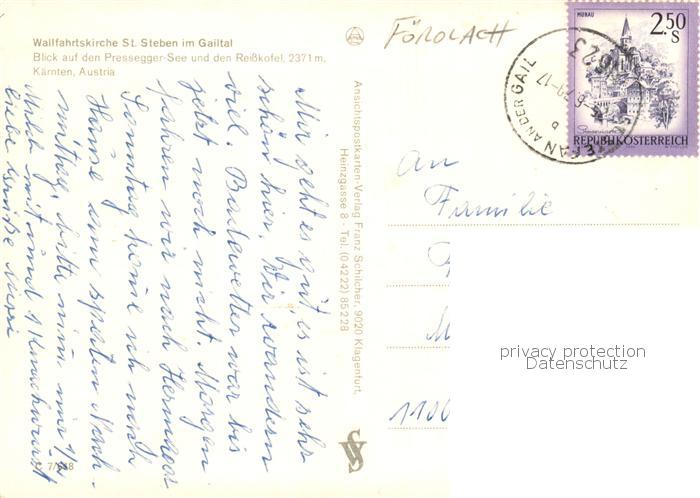 Wallfahrtskirche St. Steben im Gailtal
Blick auf den Pressegger-See und den Reißkofel, 2371 m,
Kärnten, Austria
FÖROLACH
MURAU
2.50
S
REPUBLIK ÖSTERREICH
STEFAN AN DER GAIL
9623
-6.79-17
b
Mir geht es gut es ist sehr
schön hier. Wir wandern
viel. Badewetter war bis
jetzt noch nicht. Morgen
fahren wir nach Hermagor
Sonntag komme ich nach
Hause am späten Nach-
mittag, bitte nimm mir 1/2
Milch mit und 1 Knackwurst
liebe Grüße
Ansichtspostkarten-Verlag Franz Schilcher, 9020 Klagenfurt,
Heinzgasse 8 - Tel. (0 42 22) 85 2 28
An
Familie
M
1100
privacy protection
Datenschutz
7/538